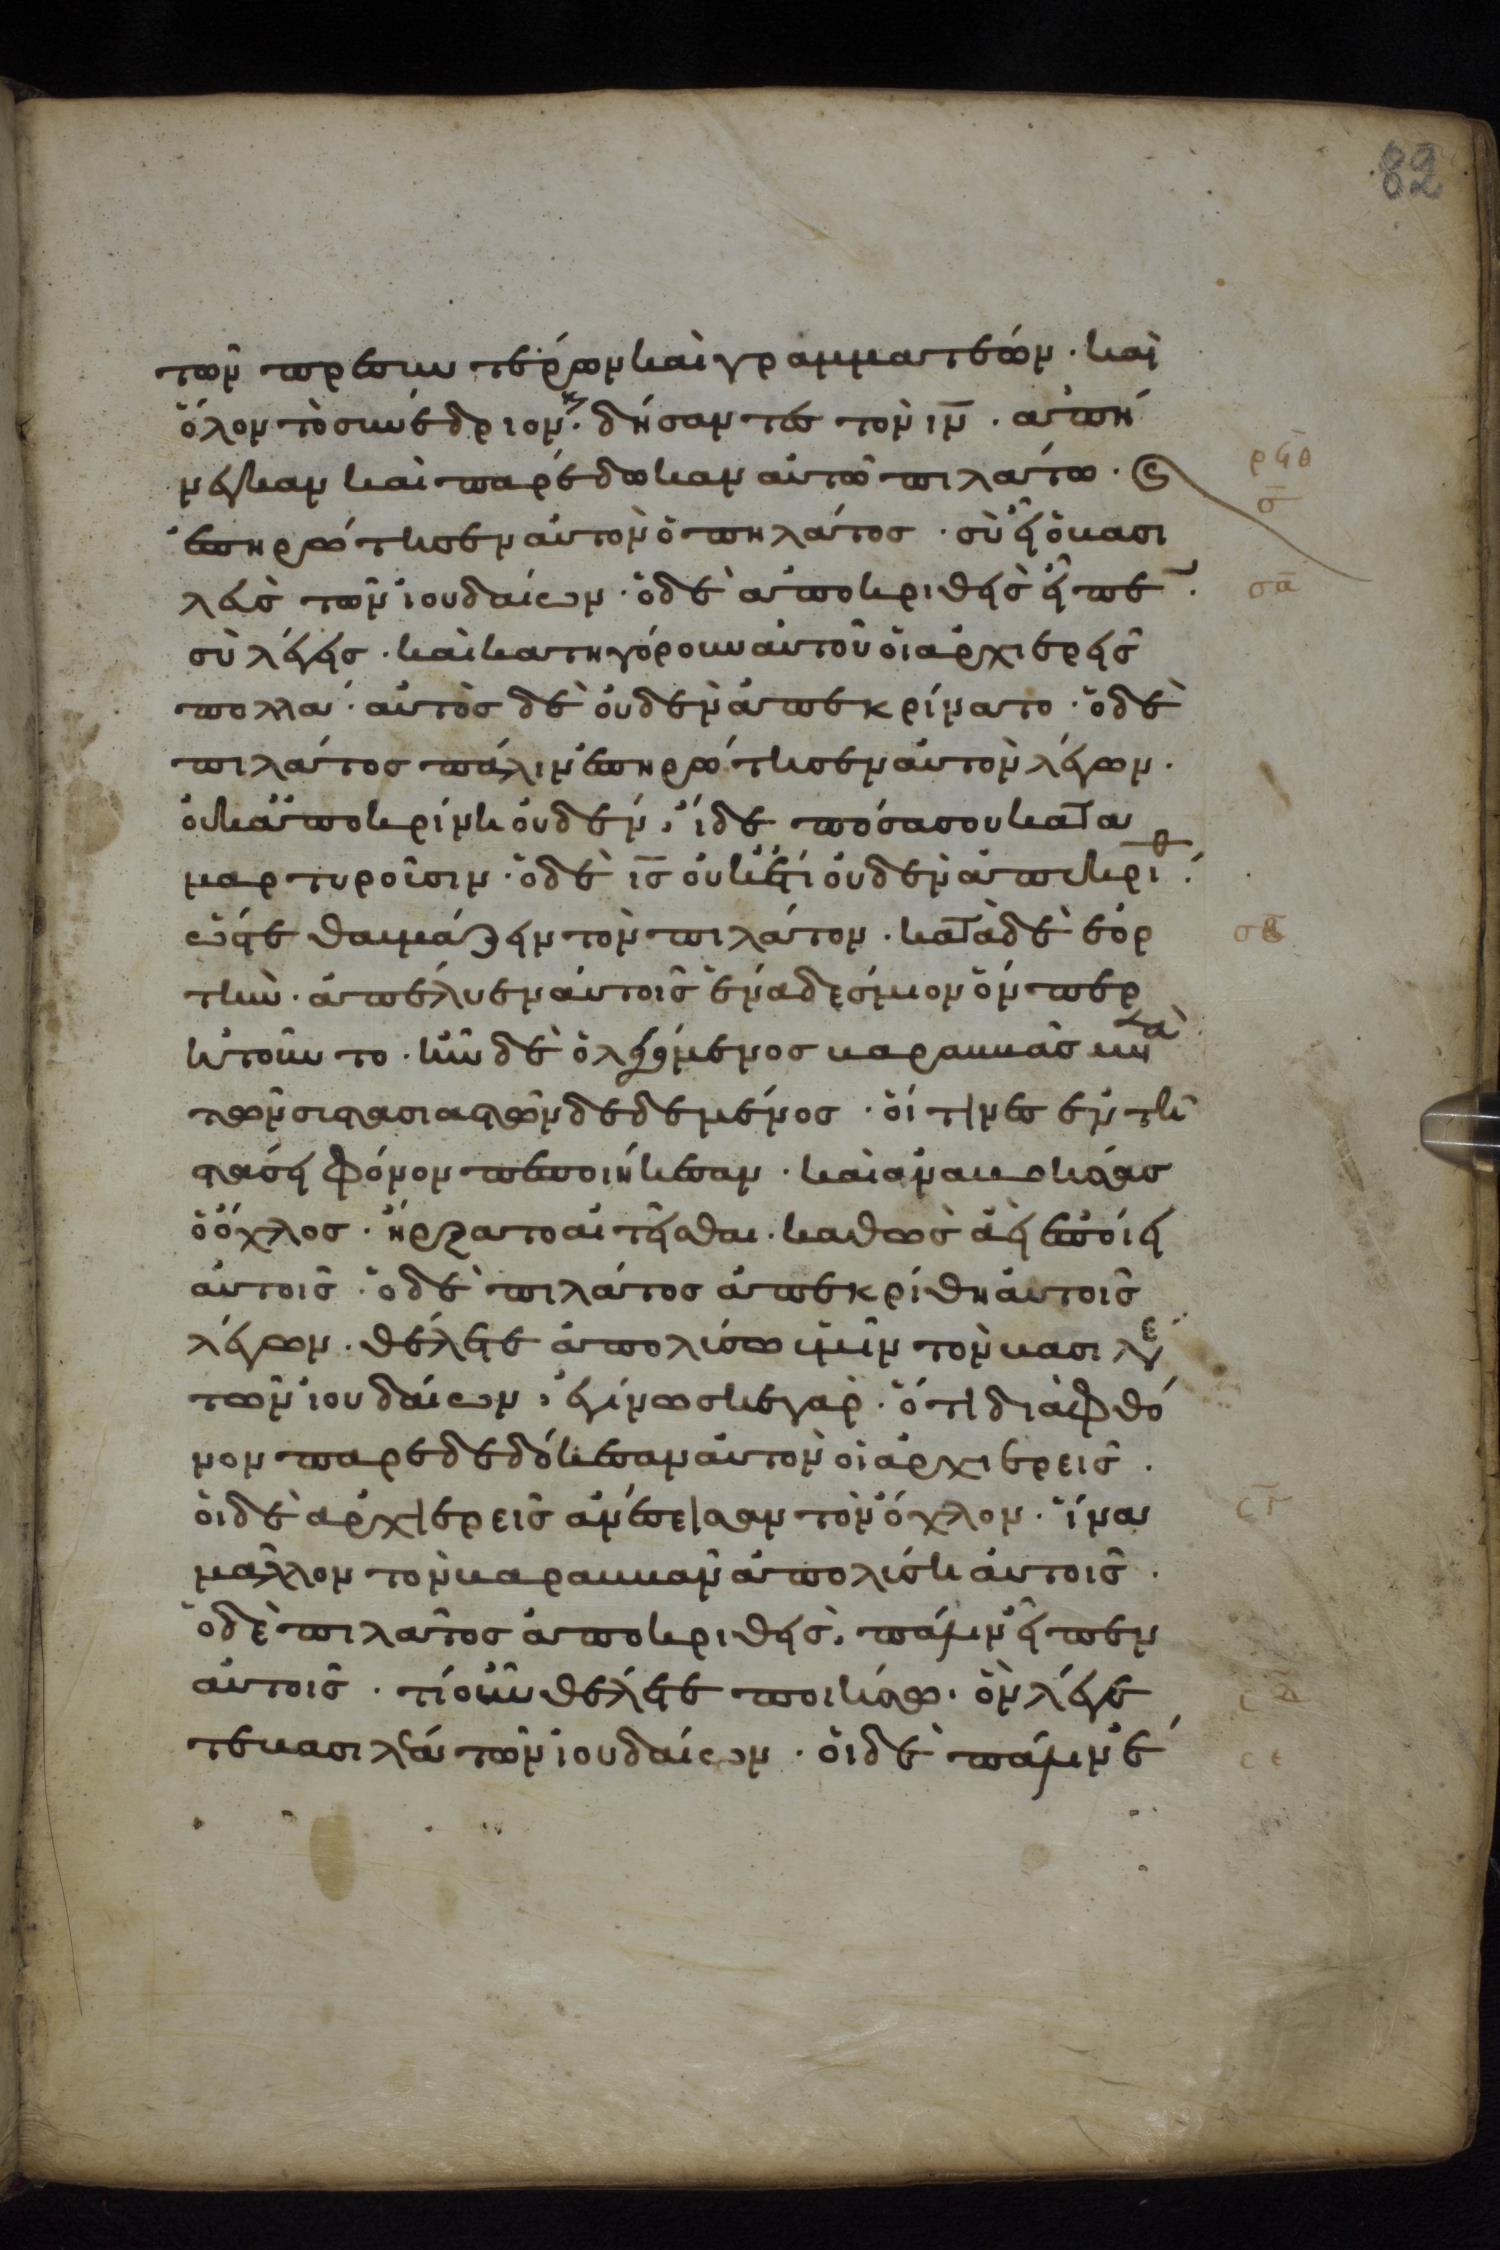 82
τῶν πρεσβυτέρων καὶ γραμματέων · καὶ
ὅλον τὸ συνέδριον · κ, δήσαντες τὸν ιν̅ · ἀπή
νεγκαν καὶ παρέδωκαν αὐτὸ πιλάτω · ϛ
ρϟθ
σ̅
ἐπηρώτησεν αὐτὸν ὁ πηλάτος · σὺ εἶ ὁ βασι
λεὺς τῶν ἰουδαίων · ὁ δὲ ἀποκριθεὶς εἶπε ·
σα̅
σὺ λέγεις · καὶ κατηγόρουν αὐτοῦ οἱ ἀρχιερεῖς
πολλά · αὐτὸς δὲ οὐδὲν ἀπεκρίνατο · ὁ δὲ
πιλάτος πάλιν ἐπηρώτησεν αὐτὸν λέγων ·
οὐκ ἀποκρίνη οὐδέν, ἴδε πόσα σου κατα
μαρτυροῖσιν · ὁ δὲ ις̅ οὐκέτι οὐδὲν ἀπεκρίθ ·
ὥστε θαυμάζειν τὸν πιλάτον · κατὰ δὲ ἑορ
σβ̅
τὴν · ἀπέλυεν αὐτοῖς ἕνα δέσμιον ὅνπερ
ἠτοῦντο · ἦν δὲ ὁ λεγόμενος βαραββὰς μετὰ
τῶν συστασιαστῶν δεδεμένος · οἵτινες ἐν τῆ
στάσει φόνον πεποιήκεσαν · καὶ ἀναβοήσας
ὁ ὄχλος · ἤρξατο αἰτεῖσθαι · καθὼς ἀεὶ ἐποίει
αὐτοῖς · ὁ δὲ πιλάτος ἀπεκρίθη αὐτοῖς
λέγων · θέλετε ἀπολύσω ὑμῖν τὸν βασιλέ
τῶν ἰουδαίων, ἐγίνωσκε γὰρ · ὅτι διὰ φθό
νον παρεδεδόκεσαν αὐτὸν οἱ ἀρχιερεῖς ·
οἱ δὲ ἀρχιερεῖς ἀνέπεισαν τὸν ὄχλον · ἵνα
σγ̅
μᾶλλον τὸν βαραββᾶν ἀπολύση αὐτοῖς ·
ὁ δὲ πιλᾶτος ἀποκριθεὶς, πάλιν εἶπεν
αὐτοῖς · τί οὖν θέλετε ποιήσω · ὃν λέγε
σδ̅
τε βασιλέα τῶν ἰουδαίων · οἱ δὲ πάλιν ἔ
σε